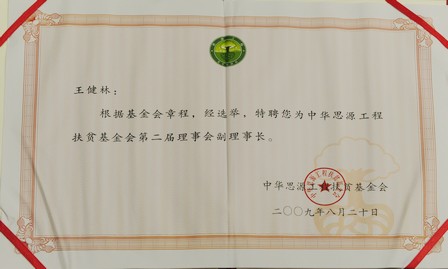 王健林：
根据基金会章程，经选举，特聘您为中华思源工程
扶贫基金会第二届理事会副理事长。
中华思源工程扶贫基金会
二〇〇九年八月二十日